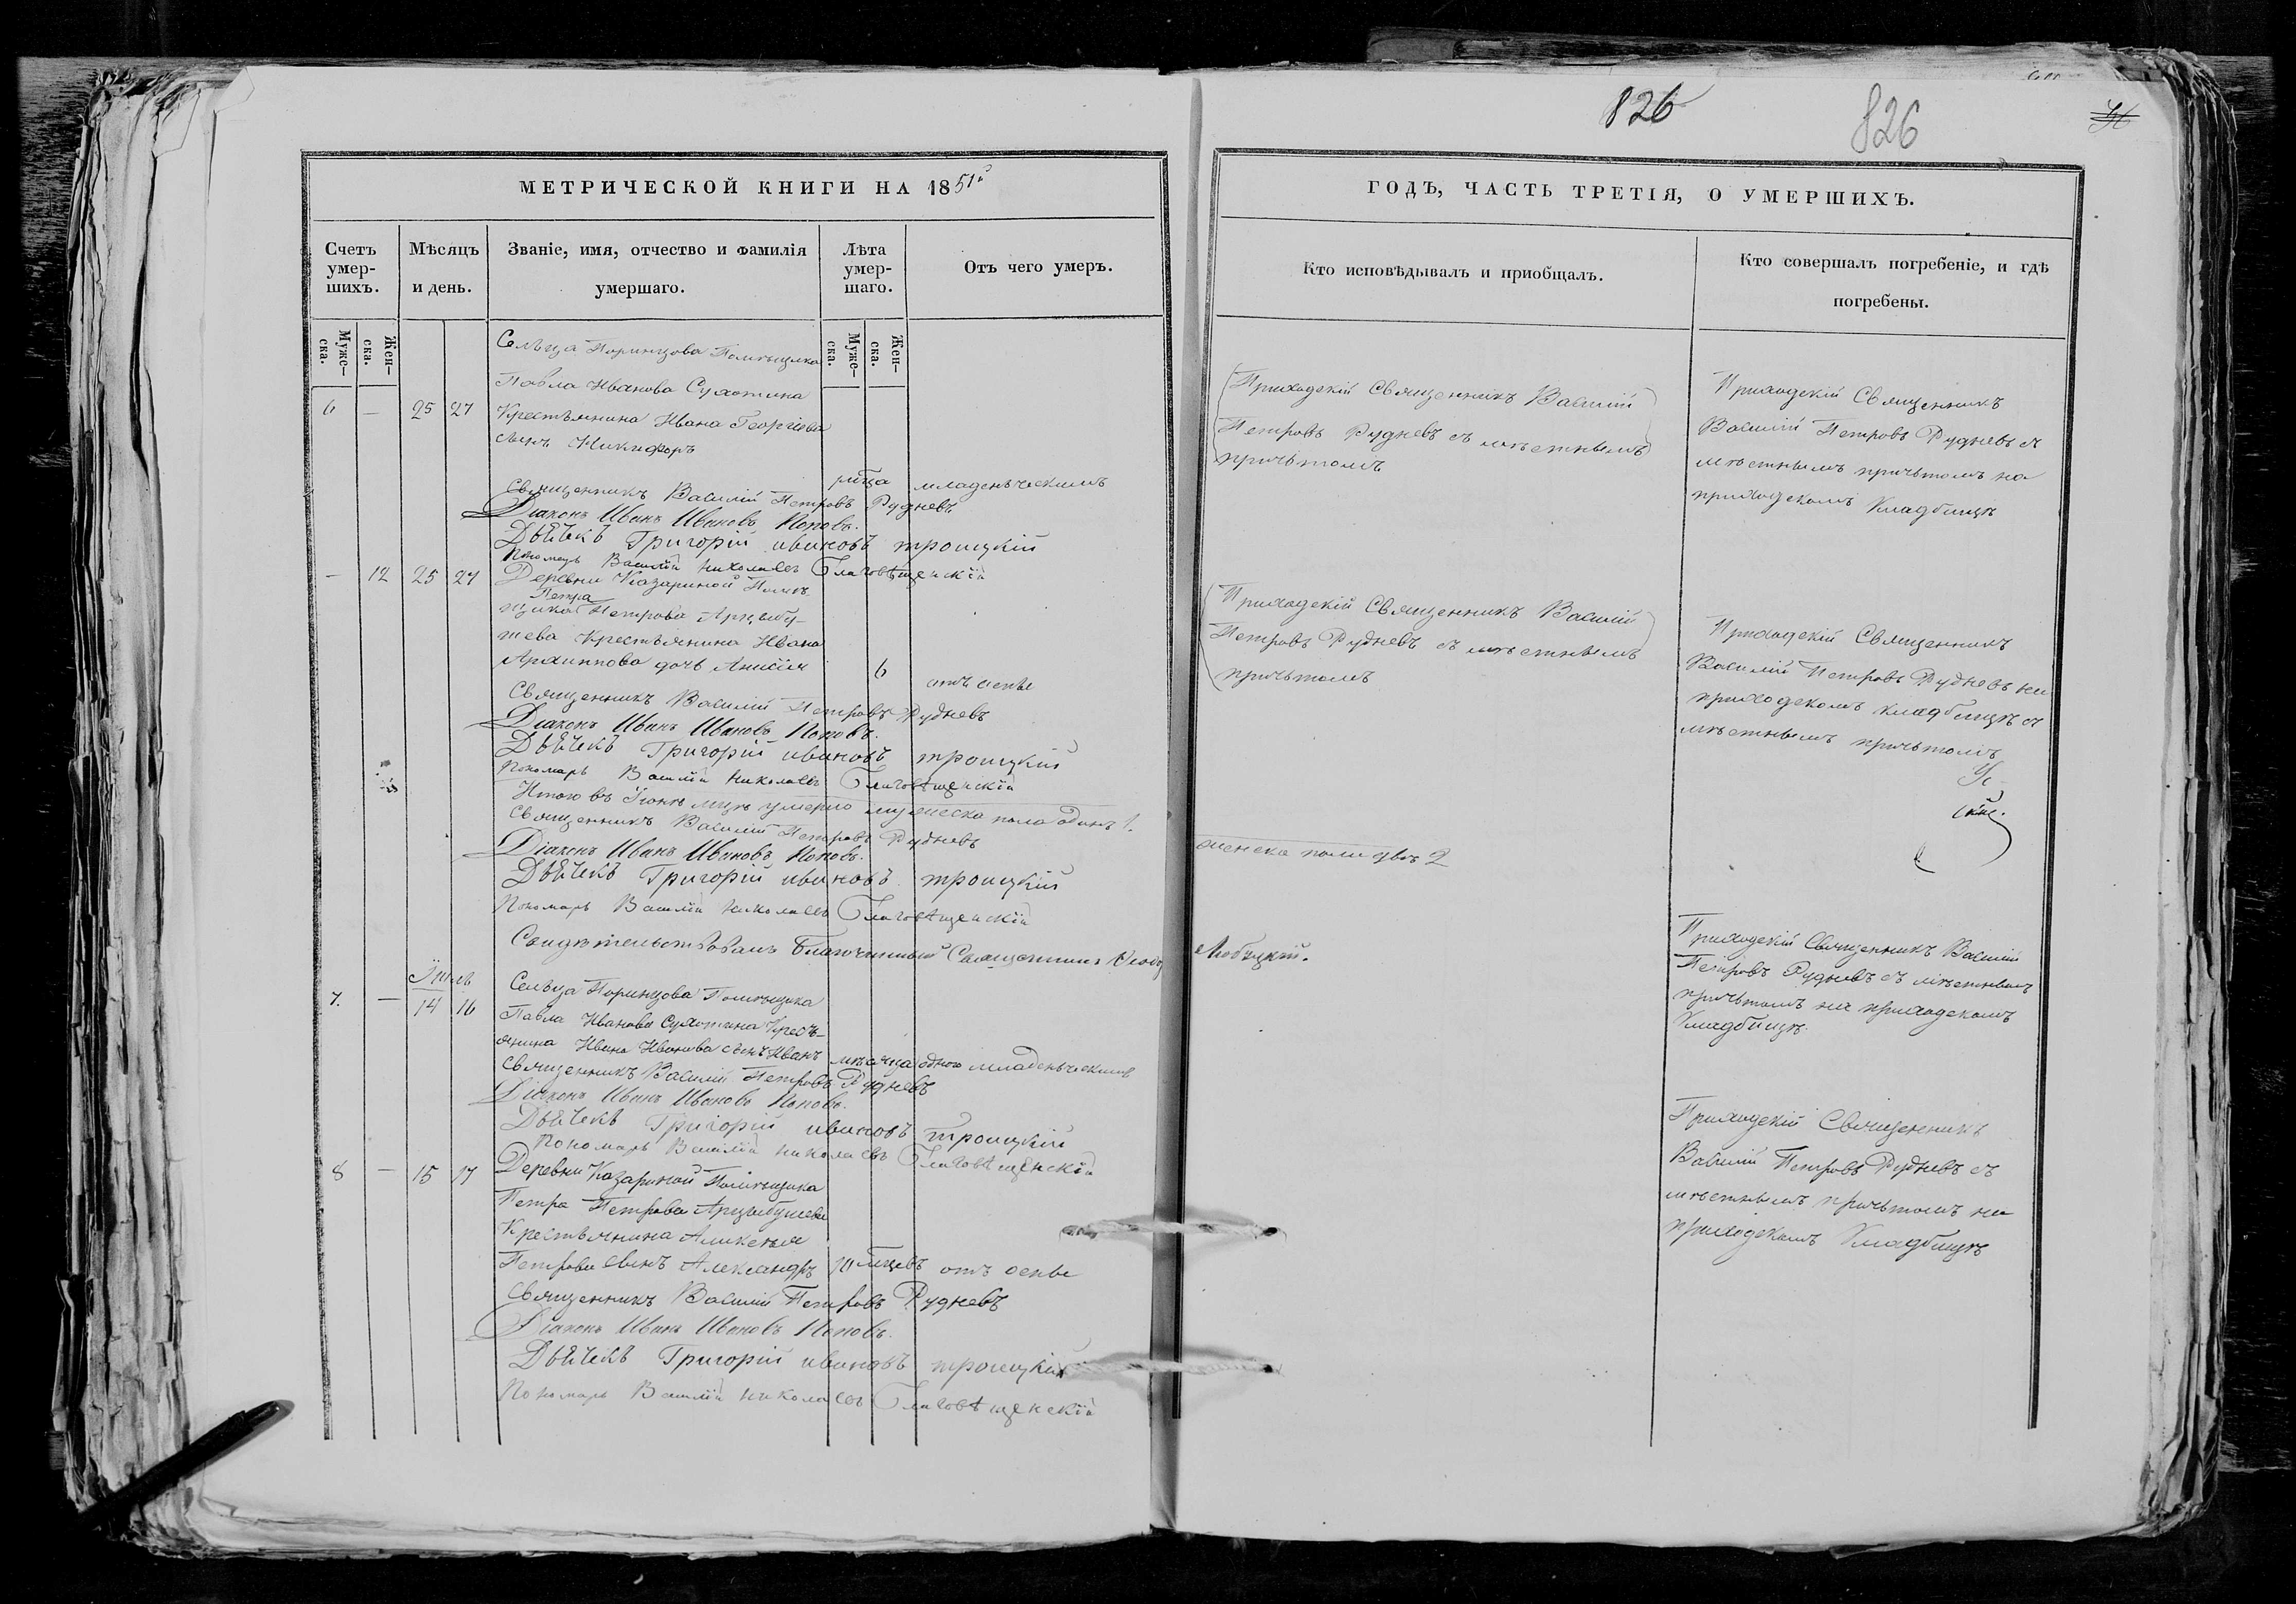 826
826
МЕТРИЧЕСКОЙ КНИГИ НА 1851й
ГОДЪ, ЧАСТЬ ТРЕТІЯ, О УМЕРШИХЪ.
Счетъ умер-шихъ.
Мѣсяцъ и день.
Званіе, имя, отчество и фамилія умершаго.
Лѣта умер-шаго.
Отъ чего умеръ.
Кто исповѣдывалъ и приобщалъ.
Кто совершалъ погребеніе, и гдѣ погребены.
Муже-ска.
Жен-ска.
Муже-ска.
Жен-ска.
Сельца Поринцова Помѣщика
Павла Иванова Сухотина
6 — 25 27 Крестьянина Ивана Георгіева
сынъ Никифоръ
младенческимъ
Священникъ Василій Петровъ Рудневъ
Діаконъ Иванъ Ивановъ Поповъ.
Дьячекъ Григорій ивановъ троицкій
Пономарь Василій Николаевъ Благовѣщенскій
Приходскій Священникъ Василій
Петровъ Рудневъ съ мѣстнымъ
причьтомъ
Приходскій Священникъ
Василій Петровъ Рудневъ съ
мѣстнымъ причьтомъ на
приходскомъ Кладбищѣ
— 12 25 27 Деревни Казариной Помѣ-
Петра
щика Петрова Арцыбу-
шева Крестьянина Ивана
Архиппова дочь Анисія 6
отъ оспы
Священникъ Василій Петровъ Рудневъ
Діаконъ Иванъ Ивановъ Поповъ.
Дьячекъ Григорій ивановъ троицкій
Пономарь Василій Николаевъ Благовѣщенскій
Приходскій Священникъ Василій
Петровъ Рудневъ съ мѣстнымъ
причьтомъ
Приходскій Священникъ
Василій Петровъ Рудневъ на
приходскомъ кладбищѣ съ
мѣстнымъ причьтомъ
Итого въ Іюнѣ мцѣ умерло мужеска пола одинъ 1.
женска пола двѣ 2
Священникъ Василій Петровъ Рудневъ
Діаконъ Иванъ Ивановъ Поповъ.
Дьячекъ Григорій ивановъ троицкій
Пономарь Василій Николаевъ Благовѣщенскій
Свидѣтельствовалъ Благочинный Священникъ
Іюль
Сельца Поринцова Помѣщика
7. — 14 16 Павла Иванова Сухотина Кресть-
янина Ивана Иванова сынъ Иванъ мѣсяца одного младенческимъ
Священникъ Василій Петровъ Рудневъ
Діаконъ Иванъ Ивановъ Поповъ.
Дьячекъ Григорій ивановъ троицкій
Пономарь Василій николаевъ Благовѣщенскій
Приходскій Священникъ Василій
Петровъ Рудневъ съ мѣстнымъ
причьтомъ на приходскомъ
Кладбищѣ.
8 — 15 17 Деревни Казариной Помѣщика
Петра Петрова Арцыбушева
Крестьянина
Петрова сынъ Александръ отъ оспы
Священникъ Василій Петровъ Рудневъ
Діаконъ Иванъ Ивановъ Поповъ.
Дьячекъ Григорій ивановъ троицкій
Пономарь Василій николаевъ Благовѣщенскій
Приходскій Священникъ
Василій Петровъ Рудневъ съ
мѣстнымъ причьтомъ на
приходскомъ Кладбищѣ